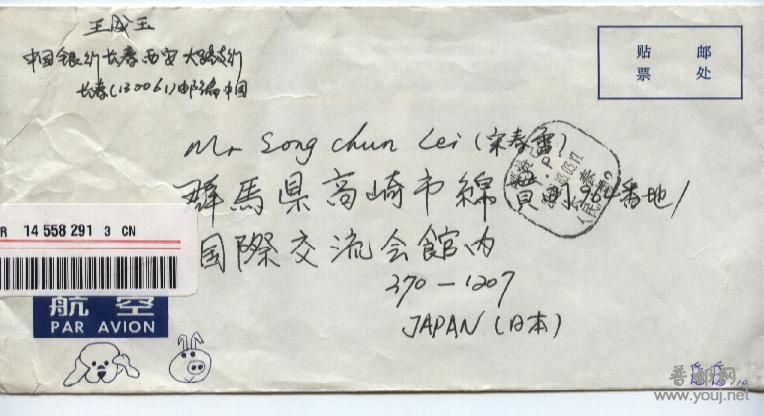 王国玉
中国银行长春西安大路支行
长春(130061)邮编中国
贴 邮
票 处
Mr Song chun Lei (宋春雷)
群馬県高崎市綿貫町964番地1
国際交流会館内
370-1207
JAPAN (日本)
R 14 558 291 3 CN
航 空
PAR AVION
P.P.
长春
人民
www.youj.net